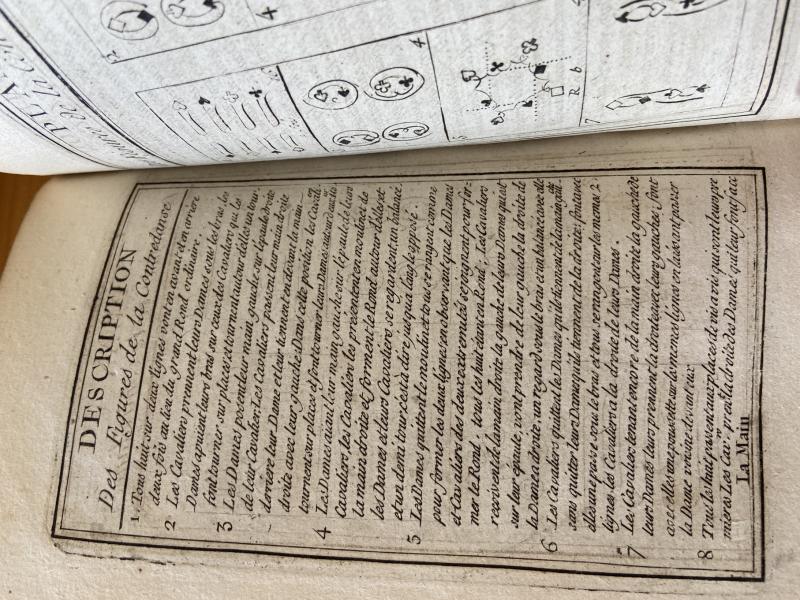 DESCRIPTION
Des Figures de la Contredanse
1. Tous huit sur deux lignes vont en avant et en arriere
deux fois au lieu du grand Rond ordinaire.
2 Les Cavaliers prennent leurs Dames sous les bras, les
Dames apuient leurs bras sur ceux des Cavaliers qui les
font tourner sur places et tournent ainsi d'elles un tour.
3 Les Dames posent leur main gauche sur l'epaule droite
de leur Cavalier Les Cavaliers passent leur main droite
derriere leur Dame et leur tiennent en devant la main
droite avec leur gauche Dans cette position les Cavaliers
tournent sur places et font tourner leurs Dames autour d'eux.
4 Les Dames aiant leur main gauche sur l'epaule de leurs
Cavaliers les Cavaliers les prennent en moulinet de
la main droite et forment le Rond autour d'elles et
les Dames et leurs Cavaliers se regardent un balancé
et un demi tour, c'est à dire jusqu'a l'angle opposé.
5 Les Dames quittent le moulinet tous se rangent comme
pour former les deux lignes en observant que les Dames
et Cavaliers des deux extremités se joignent pour for-
mer le Rond, tous les huit étant en Rond, Les Cavaliers
reçoivent de la main droite la gauche de leurs Dames qui est
sur leur epaule, et vont prendre de leur gauche la droite de
la Dame à droite, un regard sous le bras et un balancé avec elle
6 Les Cavaliers quittent les Dames qu'ils tiennent de la main gauche
sans quitter leurs Dames qu'ils tiennent de la droite, font avec
elles une passe sous le bras et tous se rangent sur les memes 2
lignes les Cavaliers à la droite de leurs Dames.
7 Les Cavaliers tenant encore de la main droite la gauche de
leurs Dames leurs prennent la droite avec leurs gauches, font
avec elles un pas allemande sur les memes lignes en laissant passer
la Dame voisine devant eux
8 Tous les huit passent aux places de vis à vis qui sont leurs pre
mieres Les Cavrs. prenent la droite des Dames qui leur font face
La Main
PLA
2
4
4
7
R b